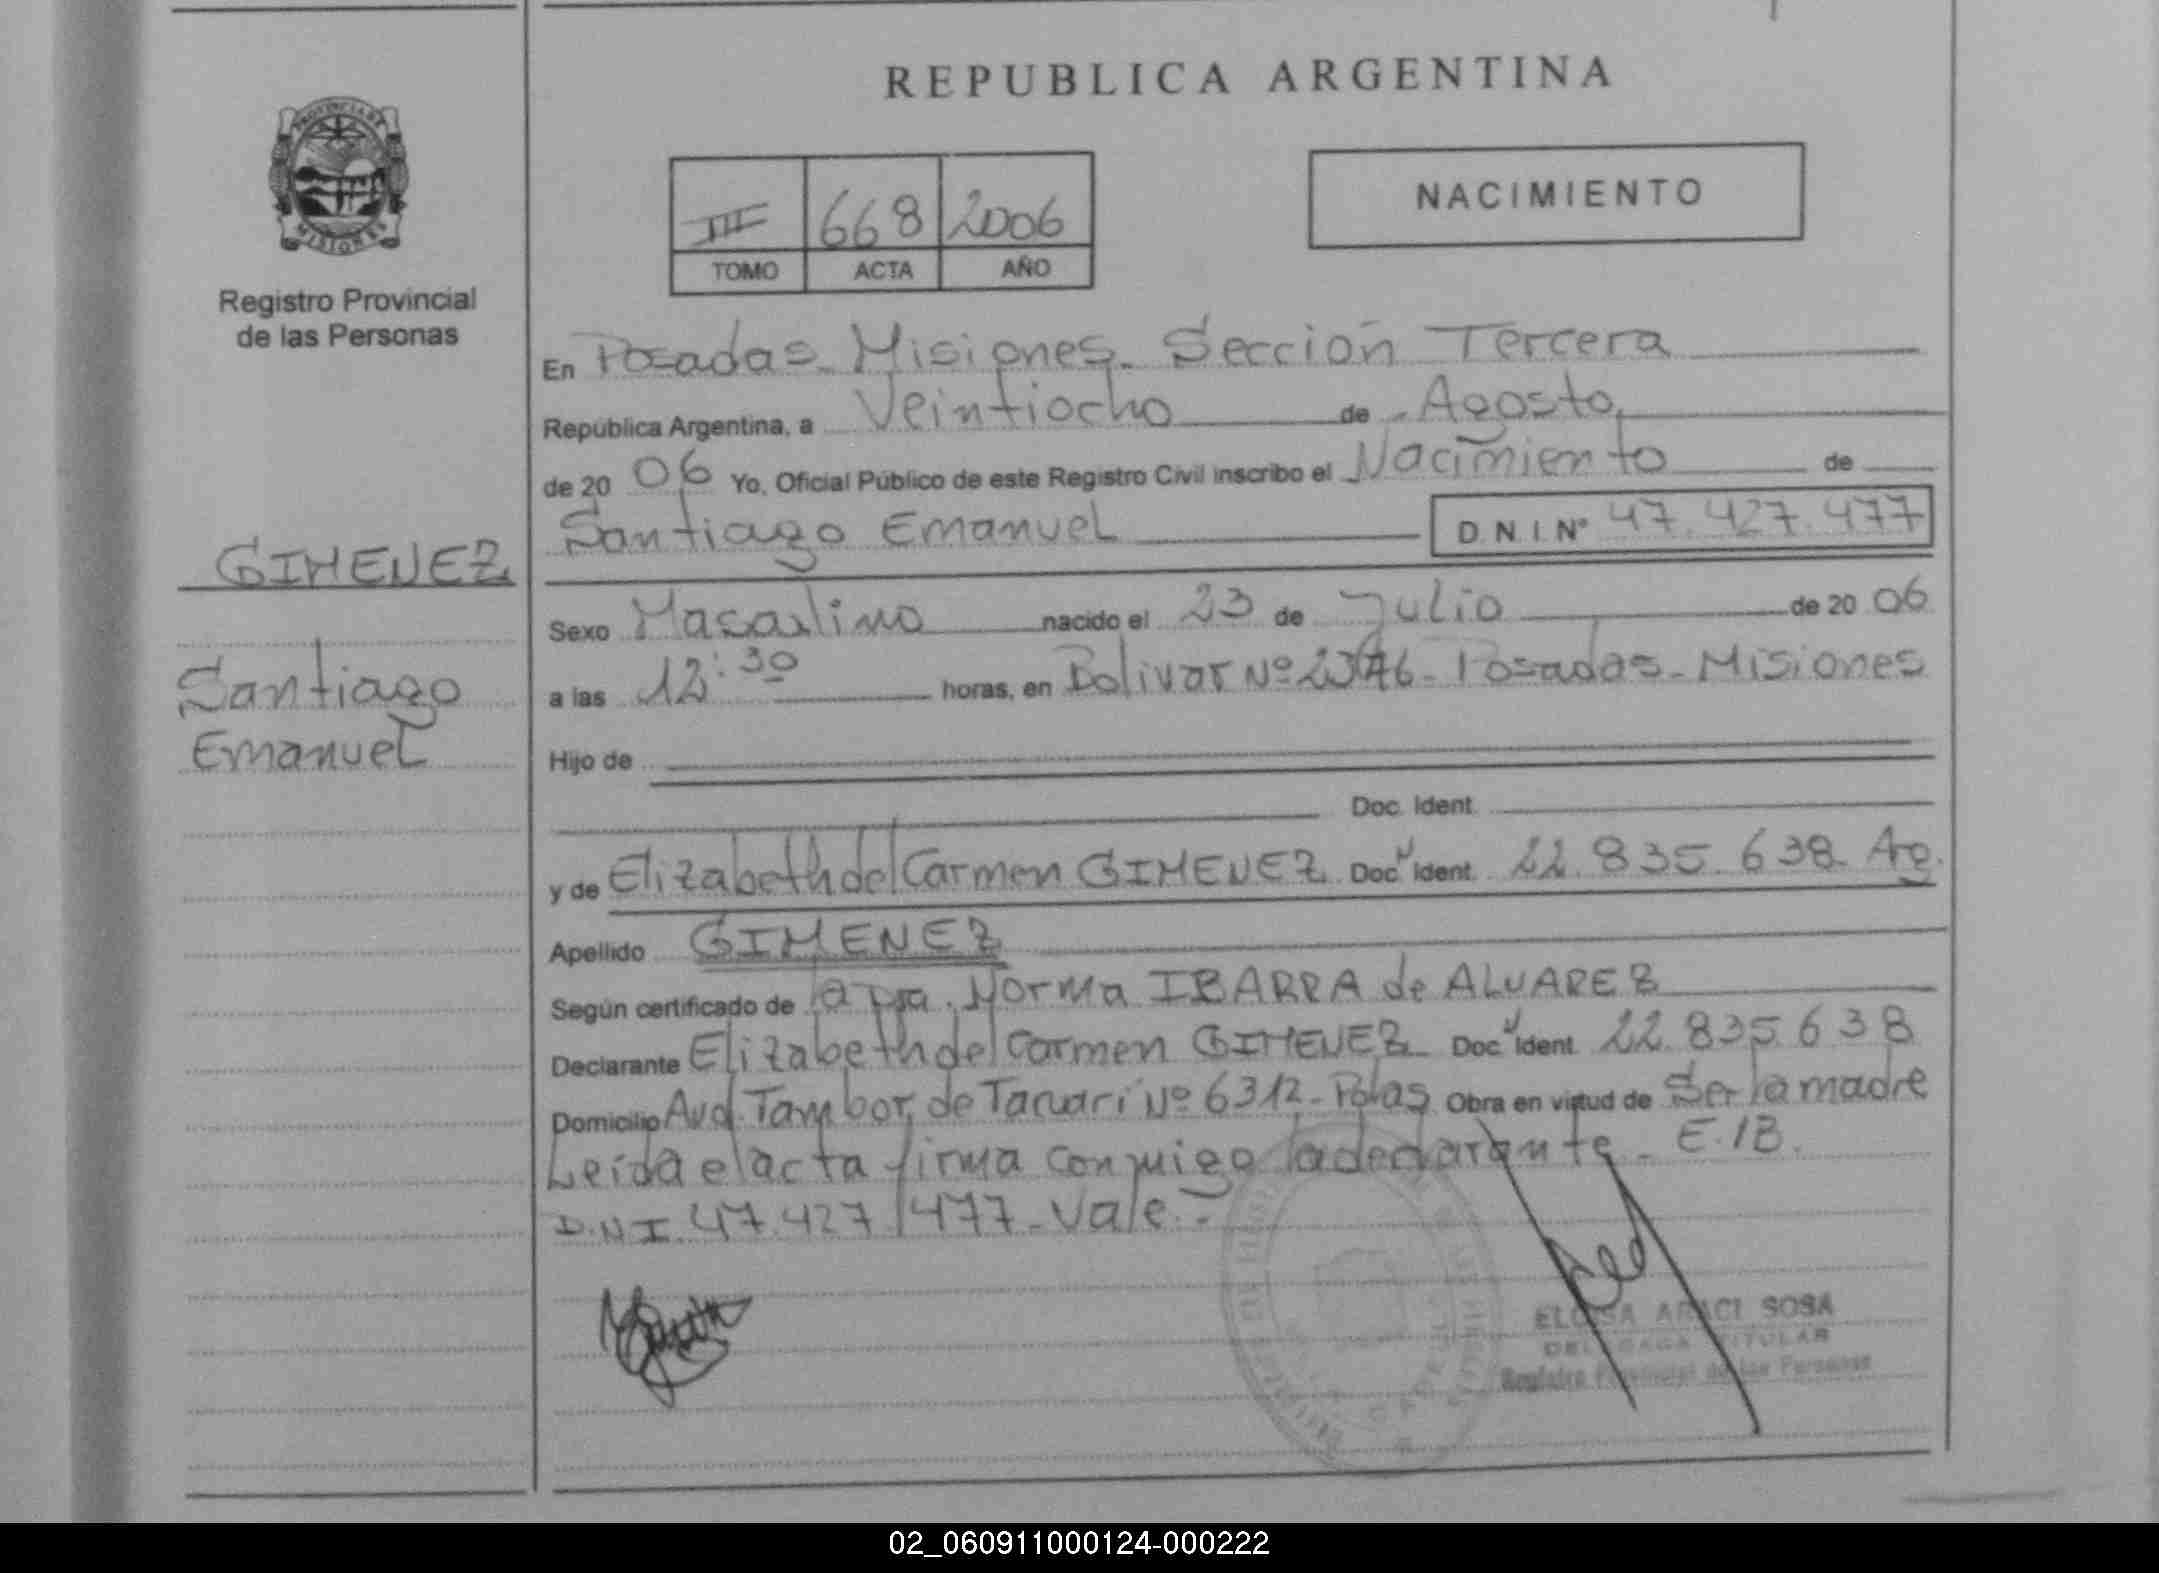 REPUBLICA ARGENTINA
PROVINCIA DE
MISIONES
Registro Provincial
de las Personas
III 668 2006
TOMO ACTA AÑO
NACIMIENTO
En Posadas Misiones Sección Tercera
República Argentina, a Veintiocho de Agosto
de 20 06 Yo, Oficial Público de este Registro Civil inscribo el Nacimiento de
Santiago Emanuel D.N.I.Nº 47.427.477
GIMENEZ
Santiago
Emanuel
Sexo Masculino nacido el 23 de Julio de 20 06
a las 12:30 horas, en Bolivar Nº Posadas - Misiones
Hijo de
Doc. Ident.
y de Elizabeth del Carmen GIMENEZ Doc Ident. 22.835.638 Arg.
Apellido GIMENEZ
Según certificado de la Dra. Norma IBARRA de ALVAREZ
Declarante Elizabeth del Carmen GIMENEZ Doc Ident. 22.835.638
Domicilio Avd. Tambor de Tacuarí Nº 6312 - Pdas Obra en virtud de Ser la madre
Leída el acta firma conmigo la declarante - E/B.
D.N.I. 47.427.477 - Vale -
ELOISA ARACI SOSA
DELEGADA TITULAR
Registro Provincial de las Personas
02_060911000124-000222